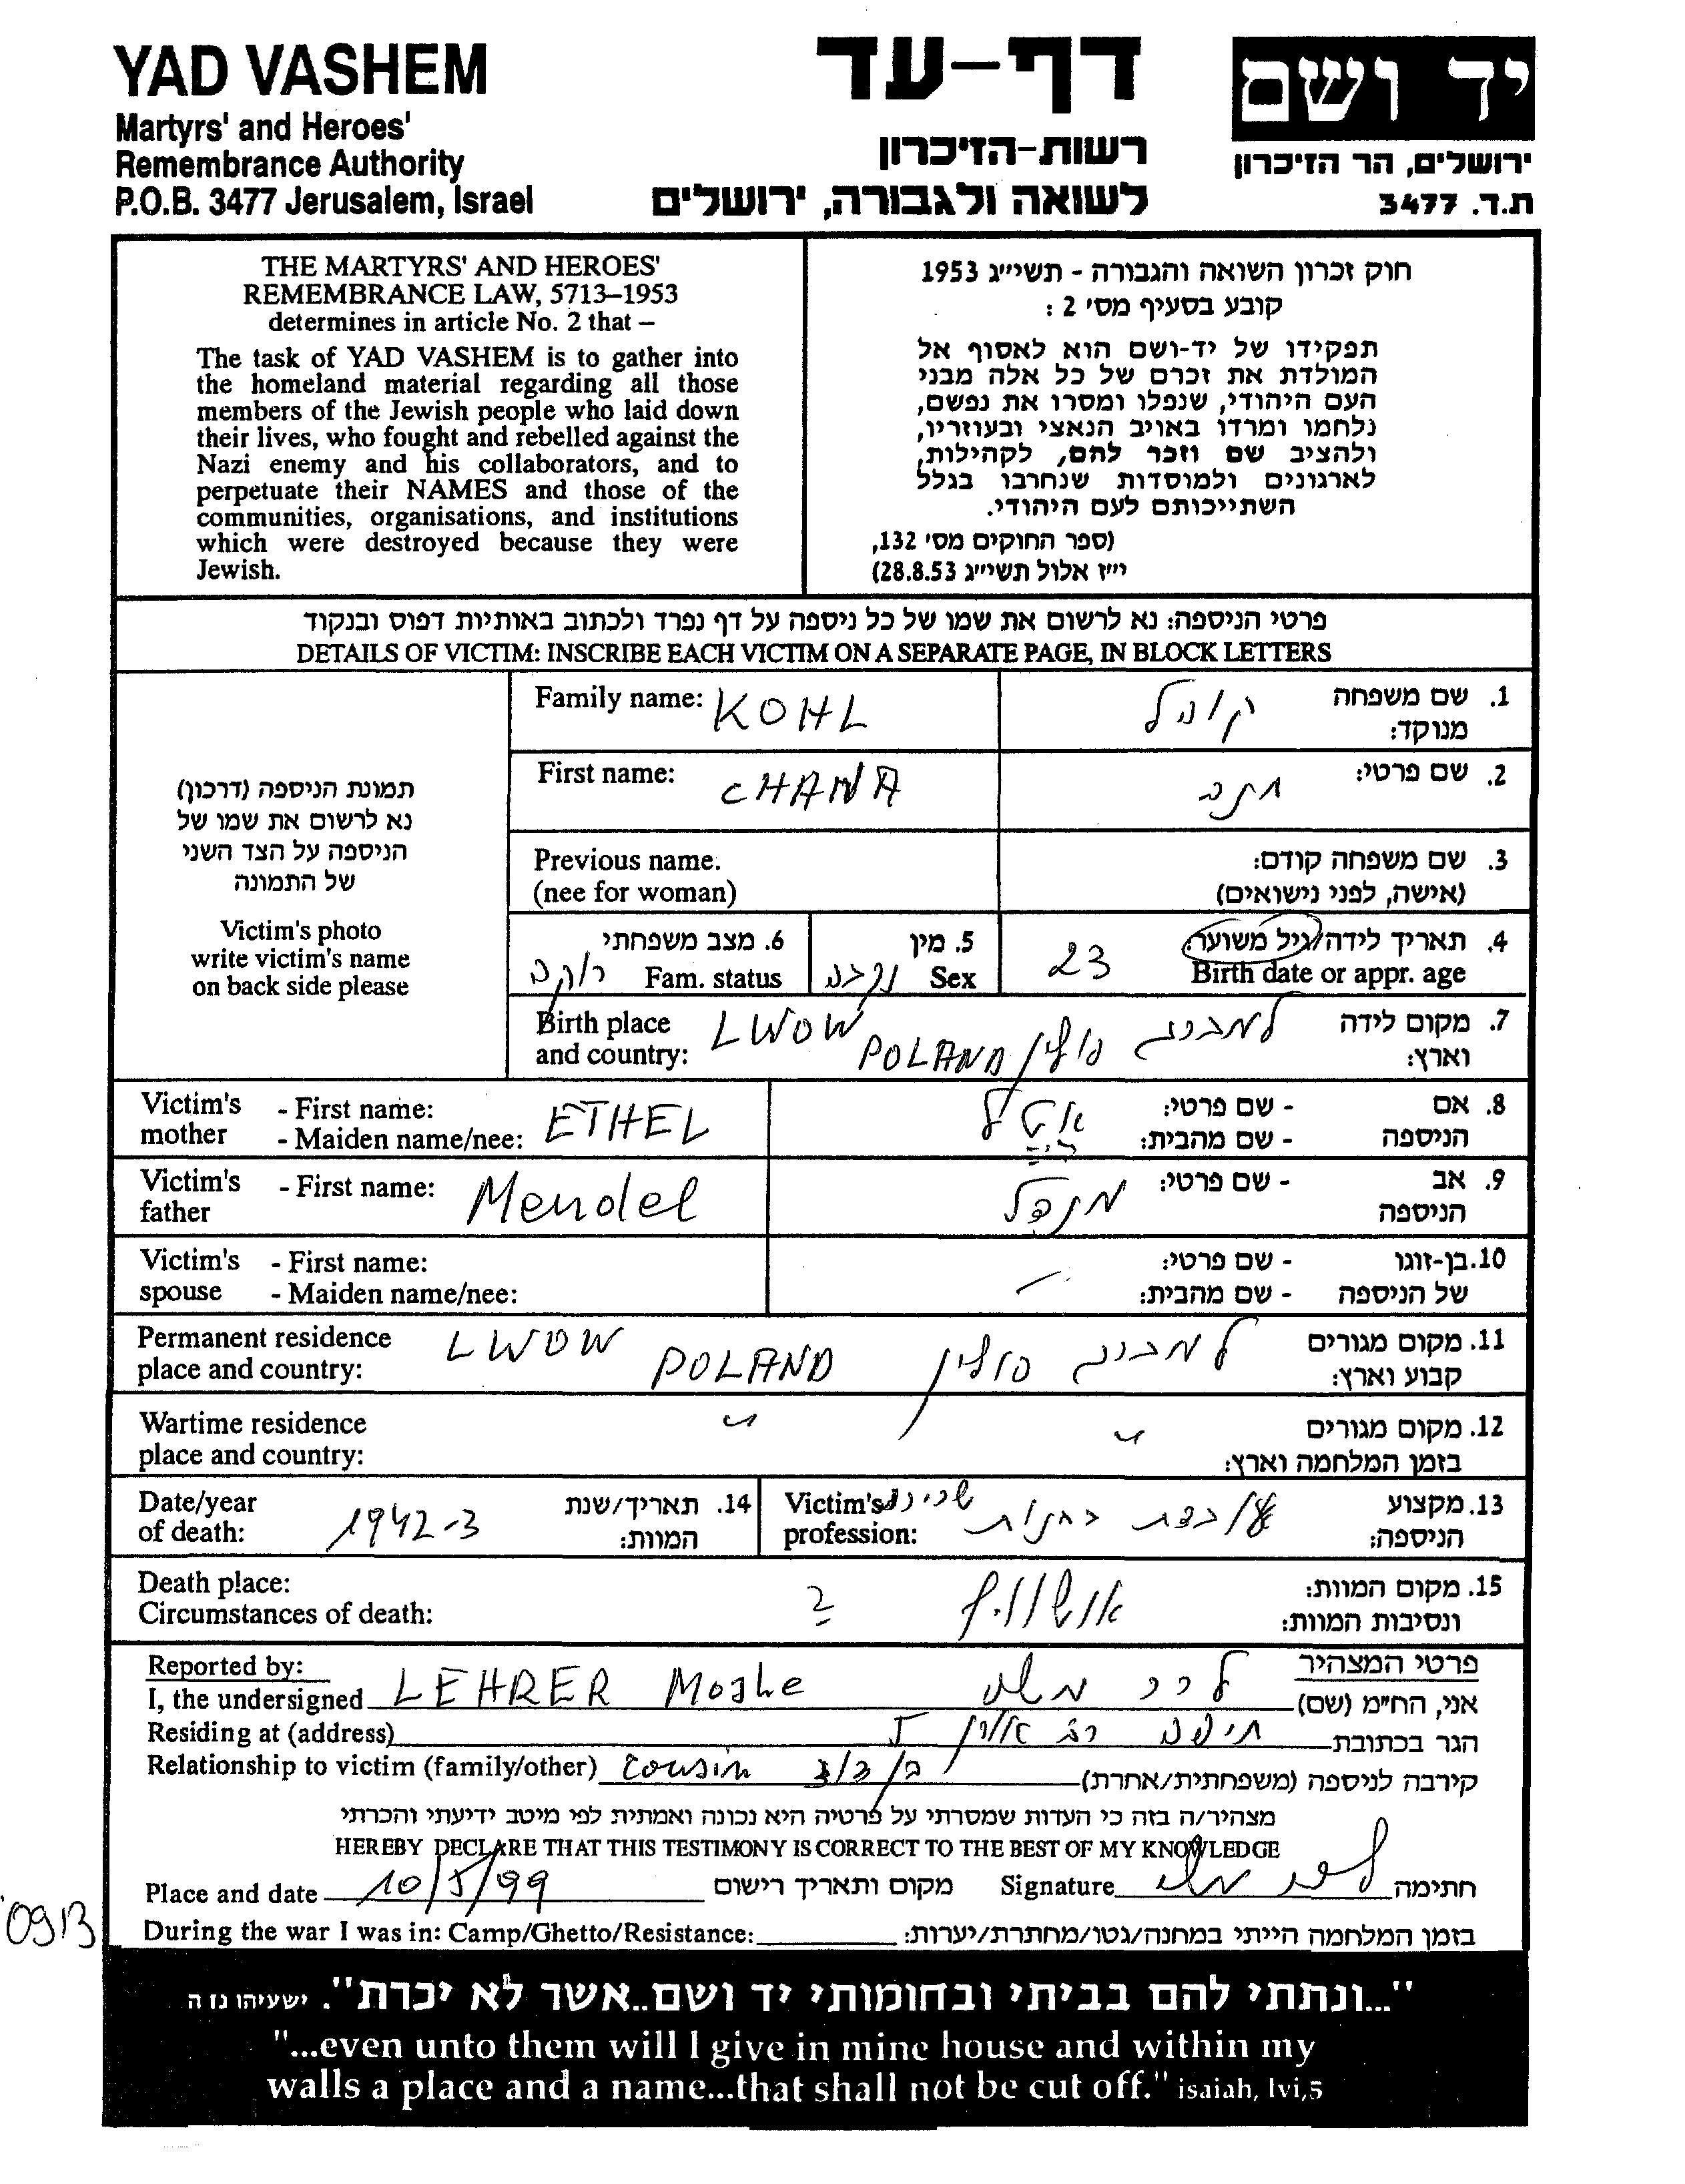 YAD VASHEM
Martyrs' and Heroes'
Remembrance Authority
P.O.B. 3477 Jerusalem, Israel
דף-עד
רשות-הזיכרון
לשואה ולגבורה, ירושלים
יד ושם
ירושלים, הר הזיכרון
ת.ד. 3477
THE MARTYRS' AND HEROES'
REMEMBRANCE LAW, 5713–1953
determines in article No. 2 that –
The task of YAD VASHEM is to gather into
the homeland material regarding all those
members of the Jewish people who laid down
their lives, who fought and rebelled against the
Nazi enemy and his collaborators, and to
perpetuate their NAMES and those of the
communities, organisations, and institutions
which were destroyed because they were
Jewish.
חוק זכרון השואה והגבורה - תשי״ג 1953
קובע בסעיף מס׳ 2 :
תפקידו של יד-ושם הוא לאסוף אל
המולדת את זכרם של כל אלה מבני
העם היהודי, שנפלו ומסרו את נפשם,
נלחמו ומרדו באויב הנאצי ובעוזריו,
ולהציב שם וזכר להם, לקהילות,
לארגונים ולמוסדות שנחרבו בגלל
השתייכותם לעם היהודי.
(ספר החוקים מס׳ 132,
י״ז אלול תשי״ג 28.8.53)
פרטי הניספה: נא לרשום את שמו של כל ניספה על דף נפרד ולכתוב באותיות דפוס ובנקוד
DETAILS OF VICTIM: INSCRIBE EACH VICTIM ON A SEPARATE PAGE, IN BLOCK LETTERS
תמונת הניספה (דרכון)
נא לרשום את שמו של
הניספה על הצד השני
של התמונה
Victim's photo
write victim's name
on back side please
Family name: KOHL
קוהל
1. שם משפחה
מנוקד:
First name: CHANA
חנה
2. שם פרטי:
Previous name.
(nee for woman)
3. שם משפחה קודם:
(אישה, לפני נישואים)
4. תאריך לידה/גיל משוער
Birth date or appr. age
23
5. מין
Sex נקבה
6. מצב משפחתי
Fam. status רווקה
Birth place
and country: LWOW POLAND
למברג פולין
7. מקום לידה
וארץ:
Victim's mother
- First name: ETHEL
- Maiden name/nee:
אטל
8. אם הניספה
- שם פרטי:
- שם מהבית:
Victim's father
- First name: Mendel
מנדל
9. אב הניספה
- שם פרטי:
Victim's spouse
- First name:
- Maiden name/nee:
10. בן-זוגו של הניספה
- שם פרטי:
- שם מהבית:
Permanent residence
place and country: LWOW POLAND
למברג פולין
11. מקום מגורים
קבוע וארץ:
Wartime residence
place and country: "
"
12. מקום מגורים
בזמן המלחמה וארץ:
Date/year
of death: 1942-3
14. תאריך/שנת
המוות:
Victim's
profession:
עובדת בחנות
13. מקצוע
הניספה:
Death place:
Circumstances of death:
?
אושוויץ
15. מקום המוות:
ונסיבות המוות:
Reported by:
I, the undersigned LEHRER Moshe
לרר משה
פרטי המצהיר
אני, הח״מ (שם)
Residing at (address)
חיפה
5
הגר בכתובת
Relationship to victim (family/other) Cousin
בן דוד
קירבה לניספה (משפחתית/אחרת)
מצהיר/ה בזה כי העדות שמסרתי על פרטיה היא נכונה ואמתית לפי מיטב ידיעתי והכרתי
HEREBY DECLARE THAT THIS TESTIMONY IS CORRECT TO THE BEST OF MY KNOWLEDGE
Place and date 10/5/99
מקום ותאריך רישום
Signature
חתימה
During the war I was in: Camp/Ghetto/Resistance:
בזמן המלחמה הייתי במחנה/גטו/מחתרת/יערות:
"...ונתתי להם בביתי ובחומותי יד ושם..אשר לא יכרת". ישעיהו נז ה
"...even unto them will I give in mine house and within my
walls a place and a name...that shall not be cut off." isaiah, lvi,5